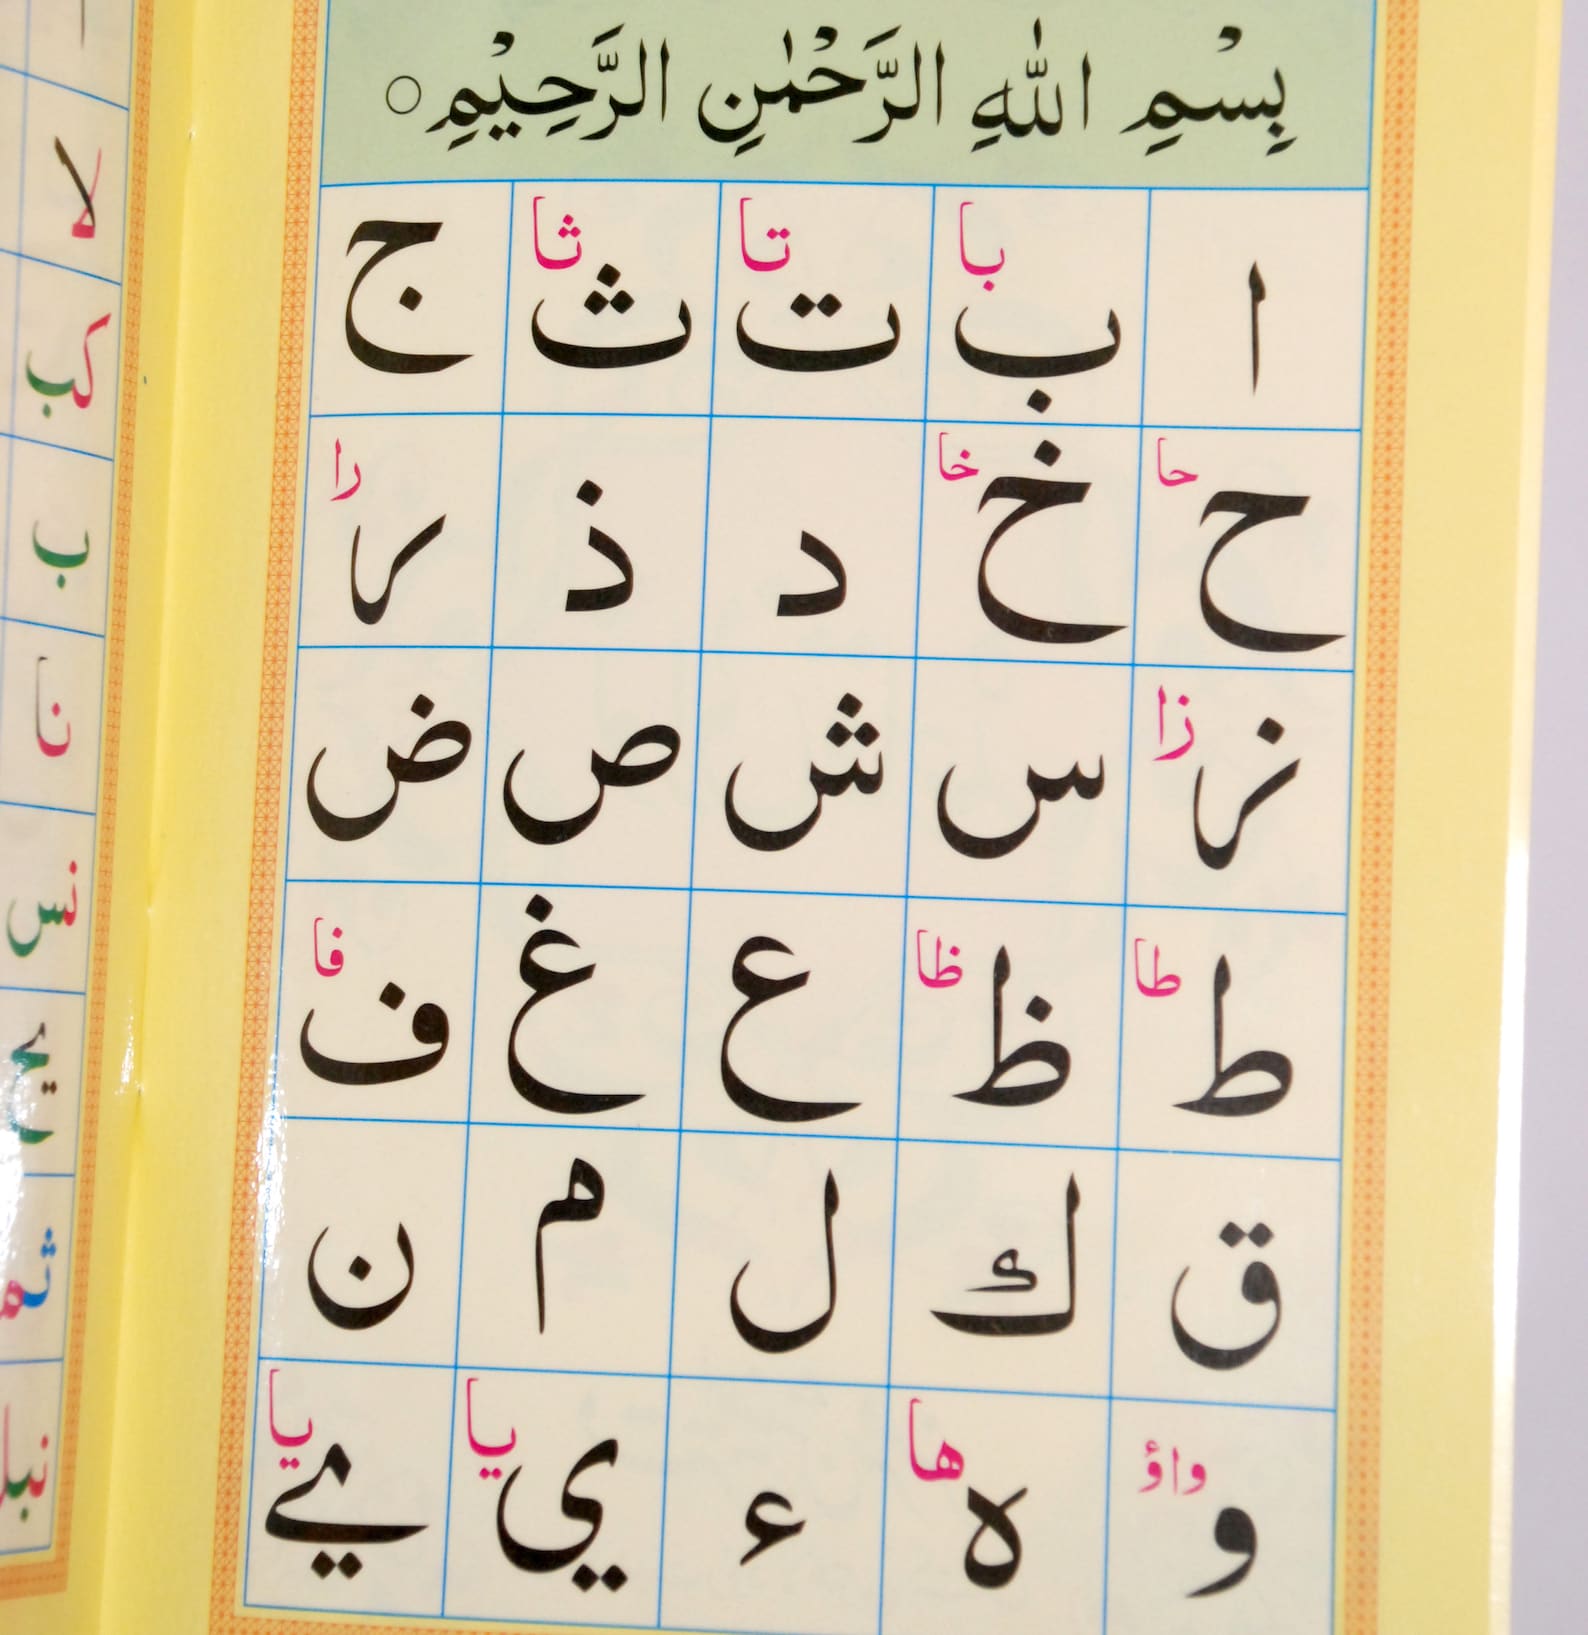 بِسْمِ اللهِ الرَّحْمٰنِ الرَّحِيْمِ ○
ا ب با ت تا ث ثا ج
ح حا خ خا د ذ ر را
ز زا س ش ص ض
ط طا ظ ظا ع غ ف فا
ق ك ل م ن
و واؤ ه ها ء ي يا ے يا
لا
كب
ب
نا
نس
يح
ثم
نبل